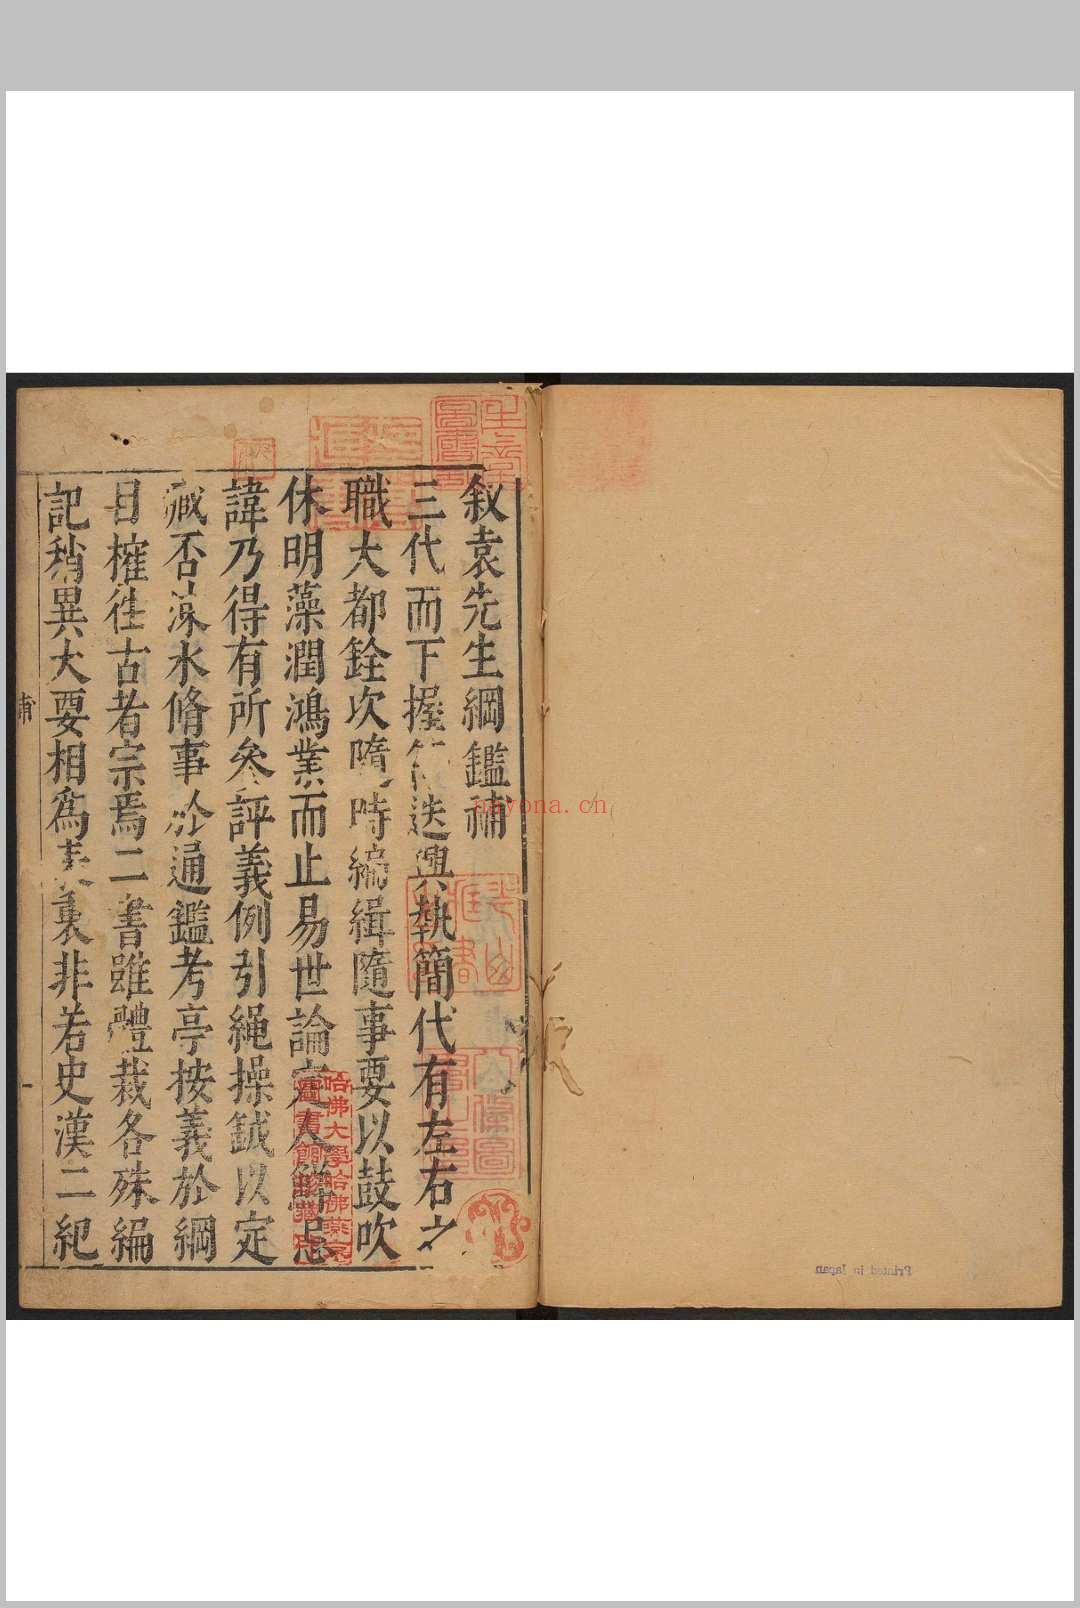 叙袁先生綱鑑補
三代而下握符迭興執簡代有左右之
職大都銓次隨時編緝隨事要以鼓吹
休明藻潤鴻業而止易世論定人鮮忌
諱乃得有所叅評義例引繩操鉞以定
臧否涑水脩事於通鑑考亭按義於綱
目榷徃古者宗焉二書雖體裁各殊編
記稍異大要相爲表裏非若史漢二紀
哈佛大學哈佛燕京
圖書館
nayona.cn
Printed in Japan